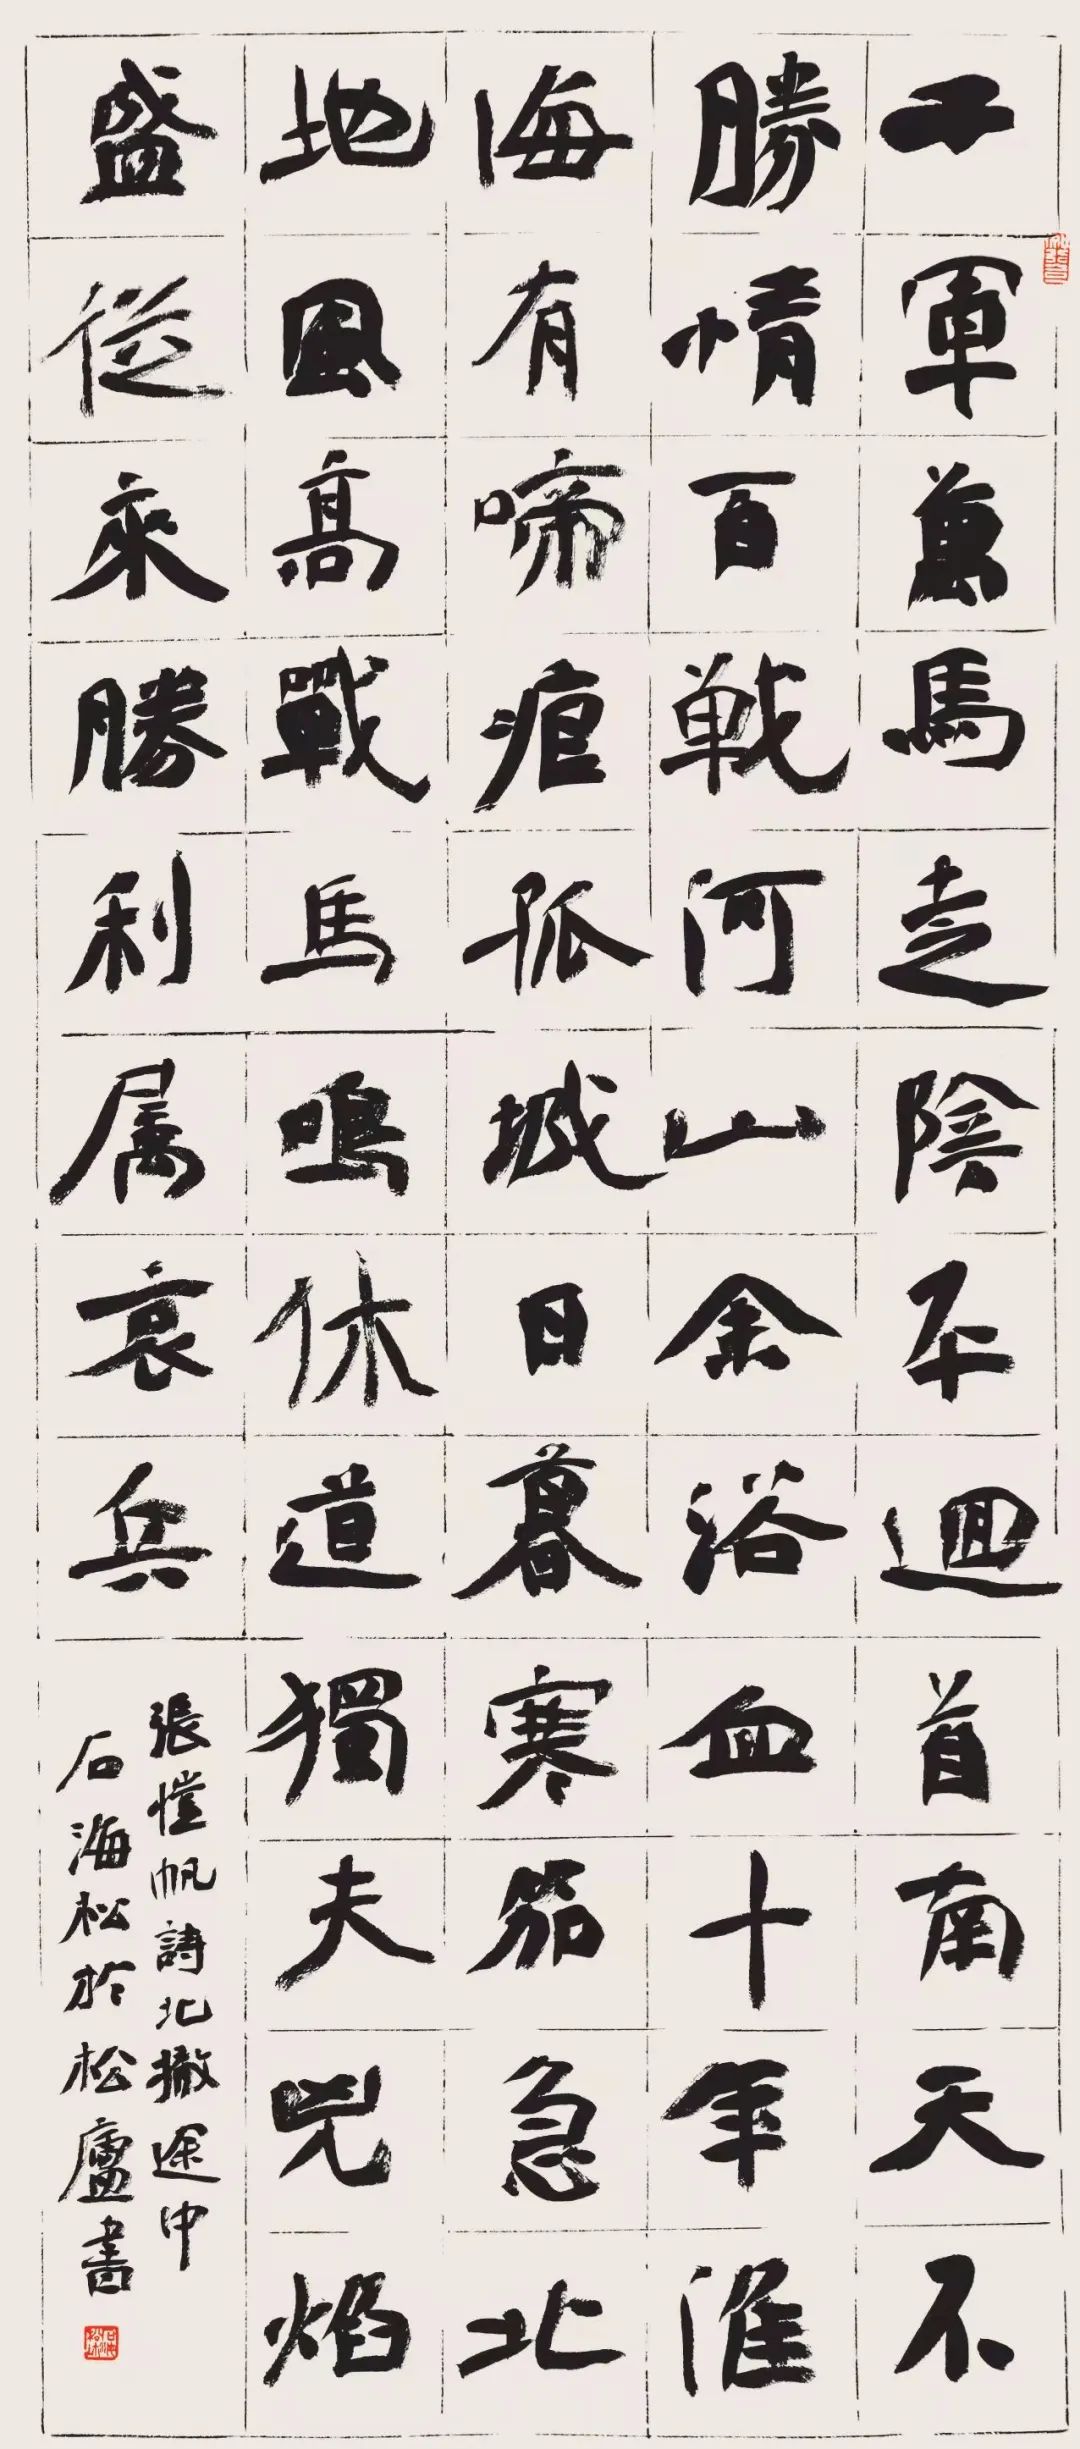 千軍萬馬走陰平迴首南天不
勝情百戦河山余浴血十年淮
海有啼痕孤城日暮寒笳急北
地風高戰馬鳴休道獨夫兇焰
盛從來勝利属哀兵
張愷帆詩北撤途中
石海松於松廬書